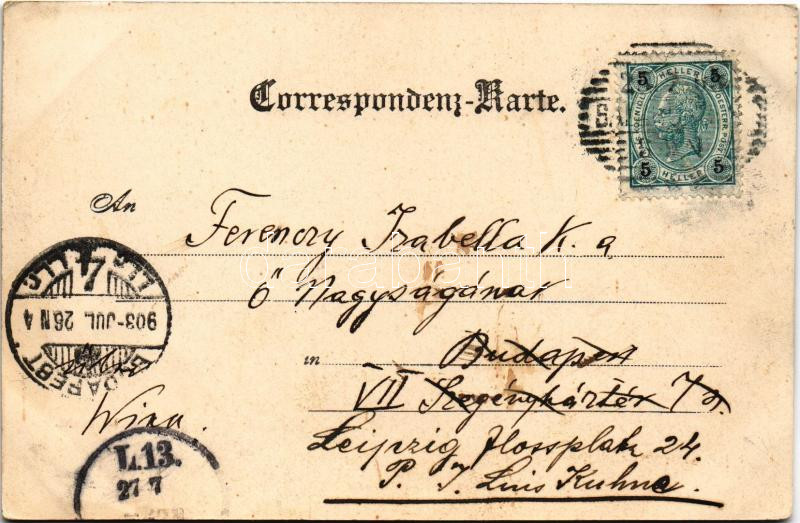 Correspondenz-Karte.
5 HELLER 5
5 HELLER 5
An Ferenczy Izabella K. a
ő Nagyságának
in Budapest
VII Szegényházter 7 sz.
Leipzig Flossplatz 24.
P. I. Luis Kuhne.
Wien.
BUDAPEST
903-JUL. 26 N 4
L.13.
27 7